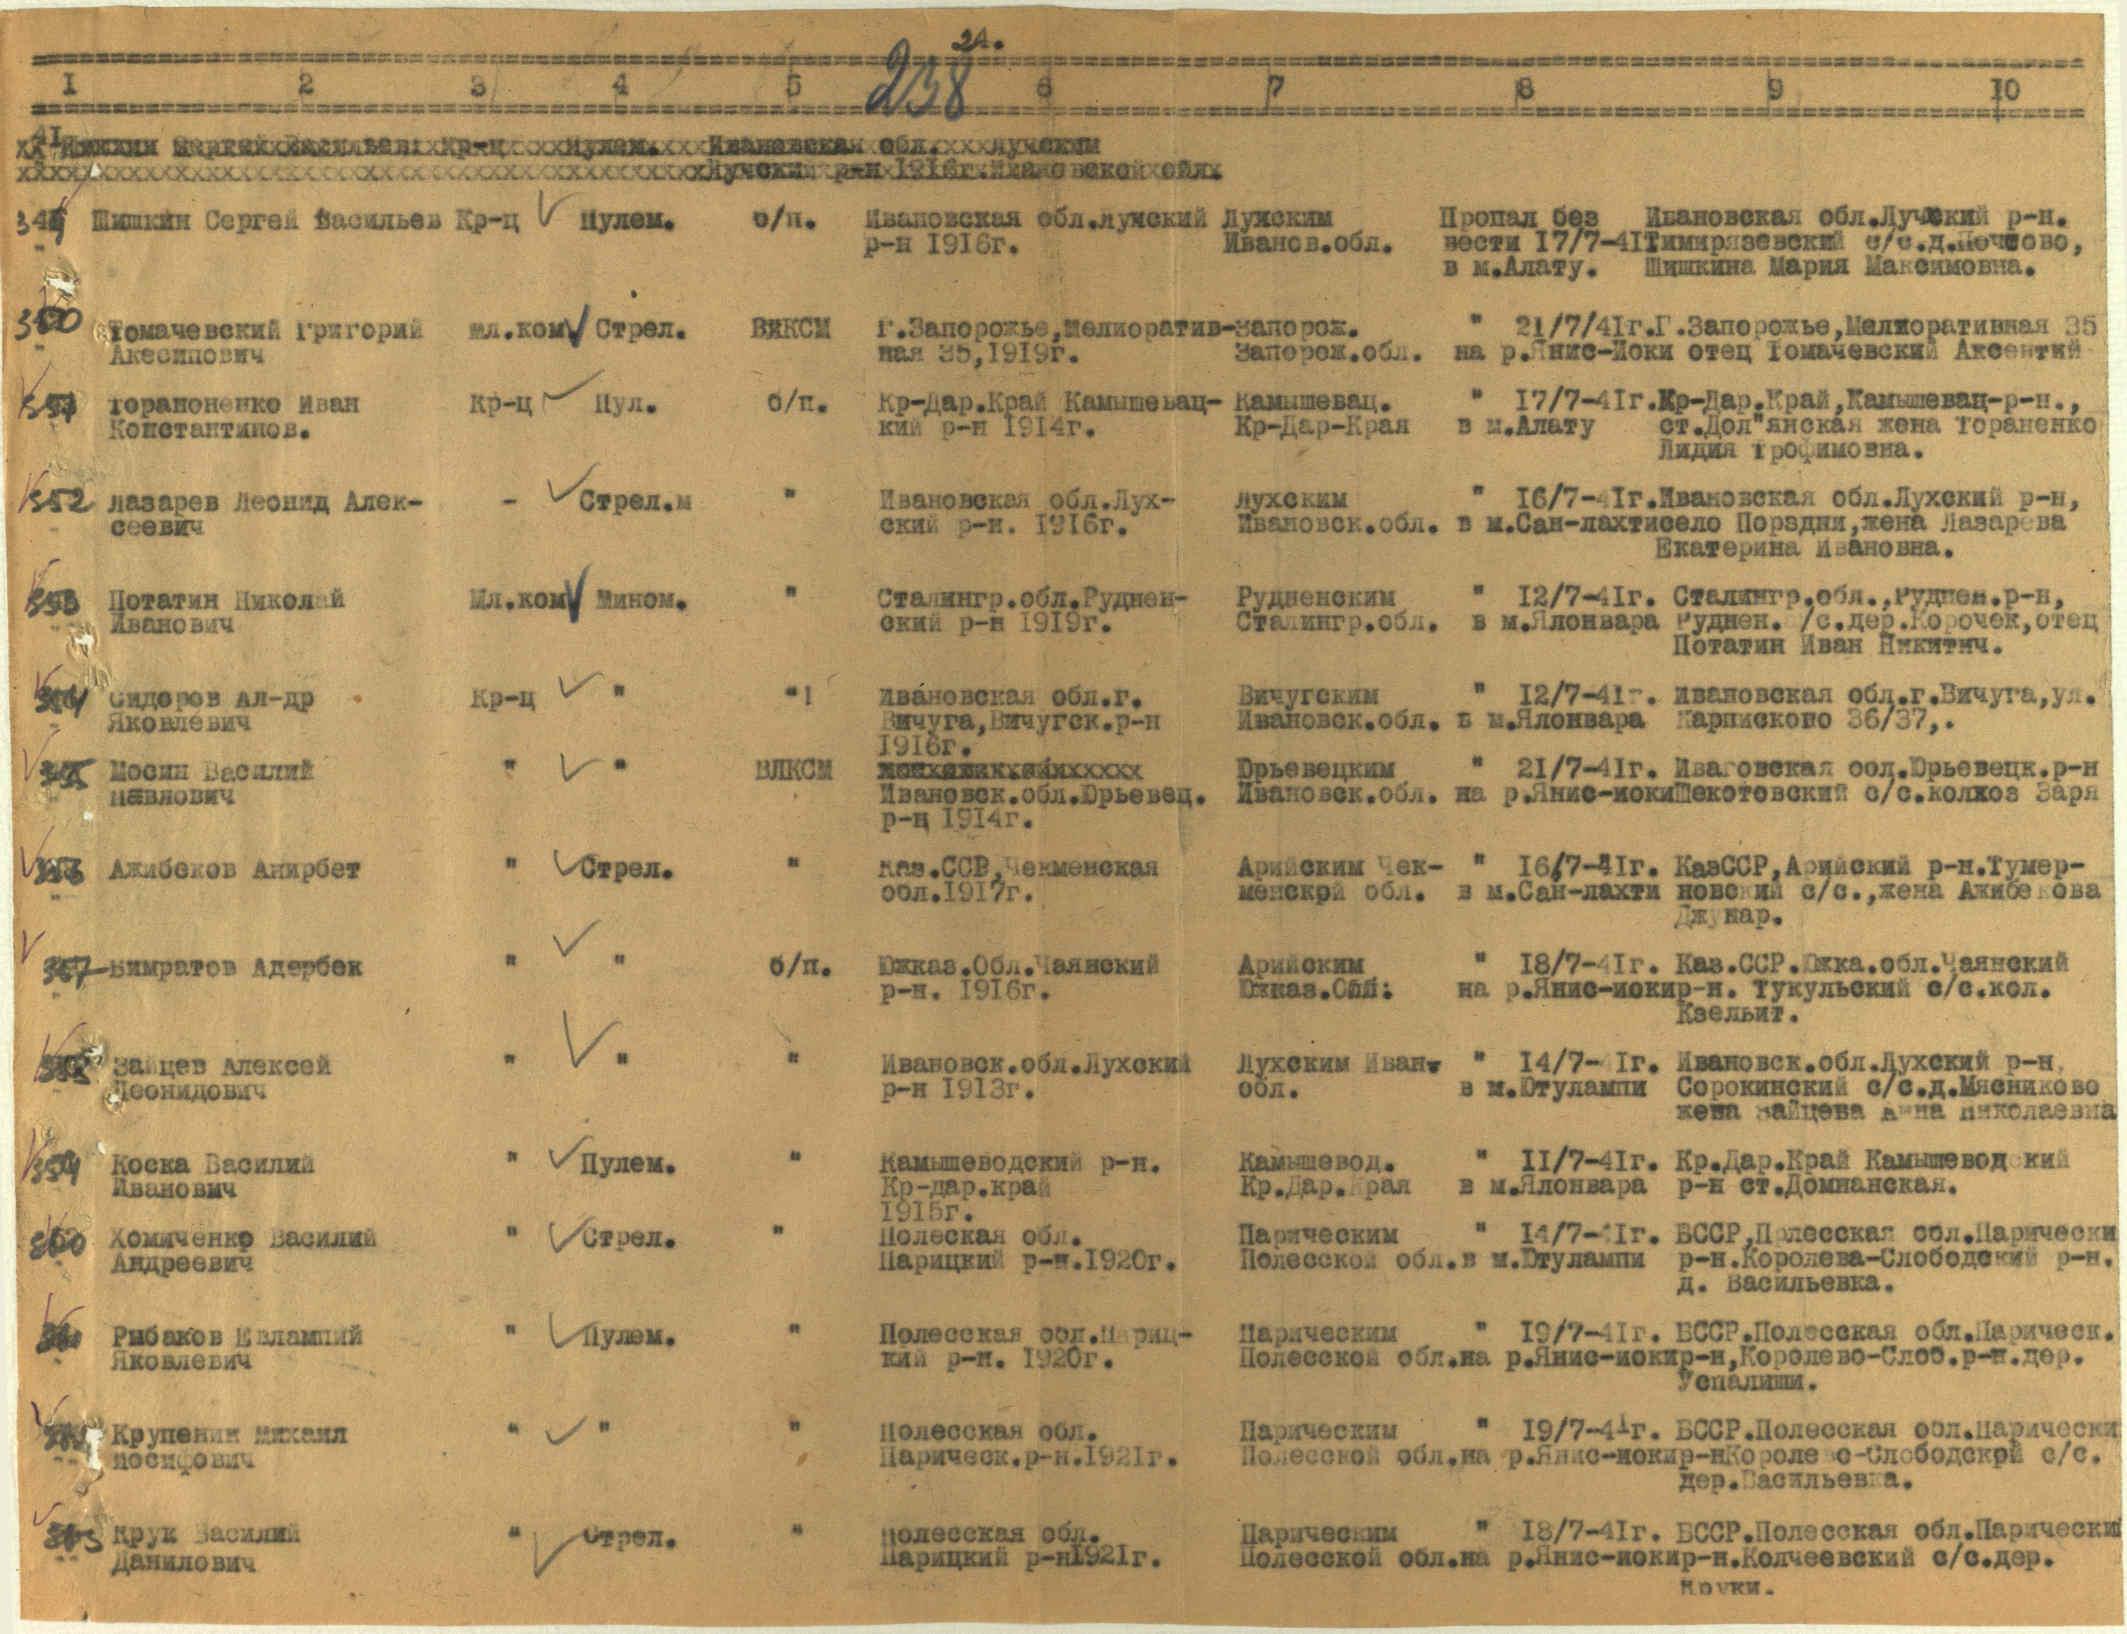 24.
238
1 2 3 4 5 6 7 8 9 10
41 Шишкин Сергей Васильев Кр-ц Пулем. Ивановская обл. Лучским
Лучский р-н 1916г. Ивановской обл.
349 Шишкин Сергей Васильев Кр-ц Пулем. б/п. Ивановская обл.Лухский Лухским Пропал без Ивановская обл.Лучский р-н.
р-н 1916г. Иванов.обл. вести 17/7-41 Тимирязевский с/с.д.
в м.Алату. Шишкина Мария Максимовна.
350 Томачевский Григорий мл.ком Стрел. ВЛКСМ г.Запорожье,Мелиоратив- Запорож. " 21/7/41г. Г.Запорожье,Мелиоративная 35
Акесипович ная 35,1919г. Запорож.обл. на р.Янис-Йоки отец Томачевский Аксентий
351 Торапоненко Иван Кр-ц Пул. б/п. Кр-Дар.Край Камышевац- Камышевац. " 17/7-41г. Кр-Дар.Край,Камышевац-р-н.,
Константинов. кий р-н 1914г. Кр-Дар-Края в м.Алату ст.Дол"янская жена Тораненко
Лидия Трофимовна.
352 Лазарев Леонид Алек- - Стрел.м " Ивановская обл.Лух- Лухским " 16/7-41г. Ивановская обл.Лухский р-н,
сеевич ский р-н. 1916г. Ивановск.обл. в м.Сан-лахти село Порздни,жена Лазарева
Екатерина Ивановна.
353 Потатин Николай Мл.ком Мином. " Сталингр.обл.Руднен- Рудненским " 12/7-41г. Сталингр.обл.,Руднен.р-н,
Иванович ский р-н 1919г. Сталингр.обл. в м.Ялонвара Руднен. /с.дер.Корочек,отец
Потатин Иван Никитич.
354 Сидоров Ал-др Кр-ц " " Ивановская обл.г. Вичугским " 12/7-41г. Ивановская обл.г.Вичуга,ул.
Яковлевич Вичуга,Вичугск.р-н Ивановск.обл. в м.Ялонвара Карпиского 36/37,.
1916г.
355 Мосин Василий " " ВЛКСМ Юрьевецким " 21/7-41г. Ивановская обл.Юрьевецк.р-н
Павлович Ивановск.обл.Юрьевец. Ивановск.обл. на р.Янис-иоки Шекотовский с/с.колхоз Заря
р-н 1914г.
356 Ажибеков Анирбет " Стрел. " Каз.ССР,Чекменская Арийским Чек- " 16/7-41г. КазССР,Арийский р-н.Тумер-
обл.1917г. менской обл. в м.Сан-лахти новский с/с.,жена Ажибекова
Джунар.
357 Бимратов Адербек " " б/п. Южказ.Обл.Чаянский Арийским " 18/7-41г. Каз.ССР.Южка.обл.Чаянский
р-н. 1916г. Южказ.Обл. на р.Янис-иоки р-н. Тукульский с/с.кол.
Кзельит.
358 Зайцев Алексей " " " Ивановск.обл.Лухский Лухским Иван. " 14/7-41г. Ивановск.обл.Лухский р-н,
Леонидович р-н 1913г. обл. в м.Ютулампи Сорокинский с/с.д.Мясниково
жена Зайцева Анна Николаевна
359 Коска Василий " Пулем. " Камышеводский р-н. Камышевод. " 11/7-41г. Кр.Дар.Край Камышеводский
Иванович Кр-дар.край Кр.Дар.Края в м.Ялонвара р-н ст.Домнанская.
1915г.
360 Хомиченко Василий " Стрел. " Полеская обл. Парическим " 14/7-41г. БССР,Полесская обл.Парически
Андреевич Парицкий р-н.1920г. Полесской обл. в м.Ютулампи р-н.Королева-Слободский р-н.
д. Васильевка.
361 Рыбаков Евлампий " Пулем. " Полесская обл.Париц- Парическим " 19/7-41г. БССР.Полесская обл.Парическ.
Яковлевич кий р-н. 1920г. Полесской обл. на р.Янис-иоки р-н,Королево-Слоб.р-н.дер.
Успалиши.
362 Крупенин Михаил " " " Полесская обл. Парическим " 19/7-41г. БССР.Полесская обл.Парически
Иосифович Парическ.р-н.1921г. Полесской обл. на р.Янис-иоки р-н Королево-Слободской с/с.
дер.Васильевка.
363 Крук Василий " Стрел. " Полесская обл. Парическим " 18/7-41г. БССР.Полесская обл.Парически
Данилович Парицкий р-н1921г. Полесской обл. на р.Янис-иоки р-н.Колчеевский с/с.дер.
Круки.